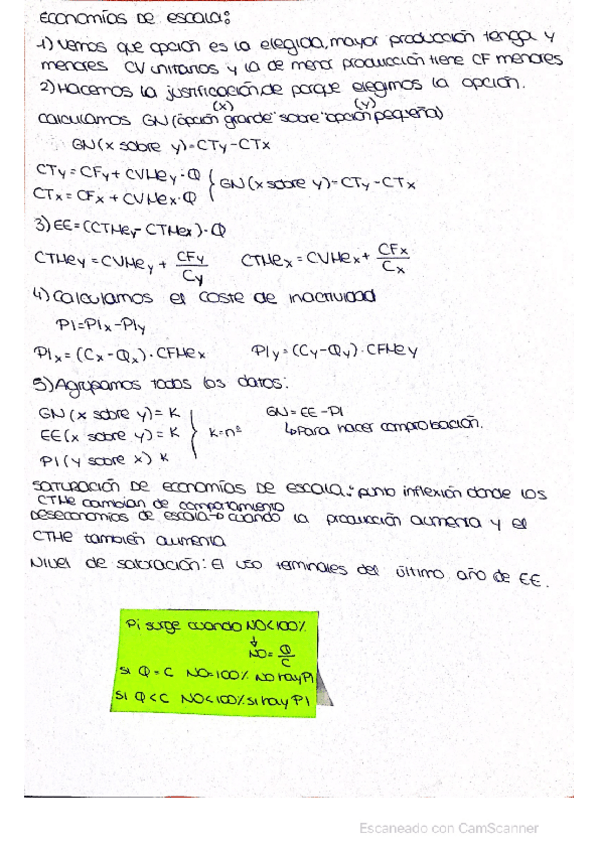 Economías de escala:
1) Vemos que opción es la elegida, mayor producción tenga y
menores CV unitarios y la de menor producción tiene CF menores
2) Hacemos la justificación de porque elegimos la opción.
(x) (y)
Calculamos GN (opción grande "sobre" opción pequeña)
GN (x sobre y) = CTy - CTx
CTy = CFy + CVMey · Q
CTx = CFx + CVMex · Q } GN (x sobre y) = CTy - CTx
3) EE = (CTMey - CTMex) · Q
CTMey = CVMey + CFy/Cy CTMex = CVMex + CFx/Cx
4) Calculamos el coste de inactividad
PI = PIx - PIy
PIx = (Cx - Qx) · CFMex PIy = (Cy - Qy) · CFMey
5) Agrupamos todos los datos:
GN (x sobre y) = K GN = EE - PI
EE (x sobre y) = K } K = nº ↳ Para hacer comprobación.
PI (y sobre x) K
Saturación de economías de escala: punto inflexión donde los
CTMe cambian de comportamiento
Deseconomías de escala → cuando la producción aumenta y el
CTMe también aumenta
Nivel de saturación: El uso terminales del último año de EE.
Pi surge cuando NO<100%
↓
NO = Q/C
si Q = C NO=100% NO hay PI
si Q < C NO<100% si hay PI
Escaneado con CamScanner